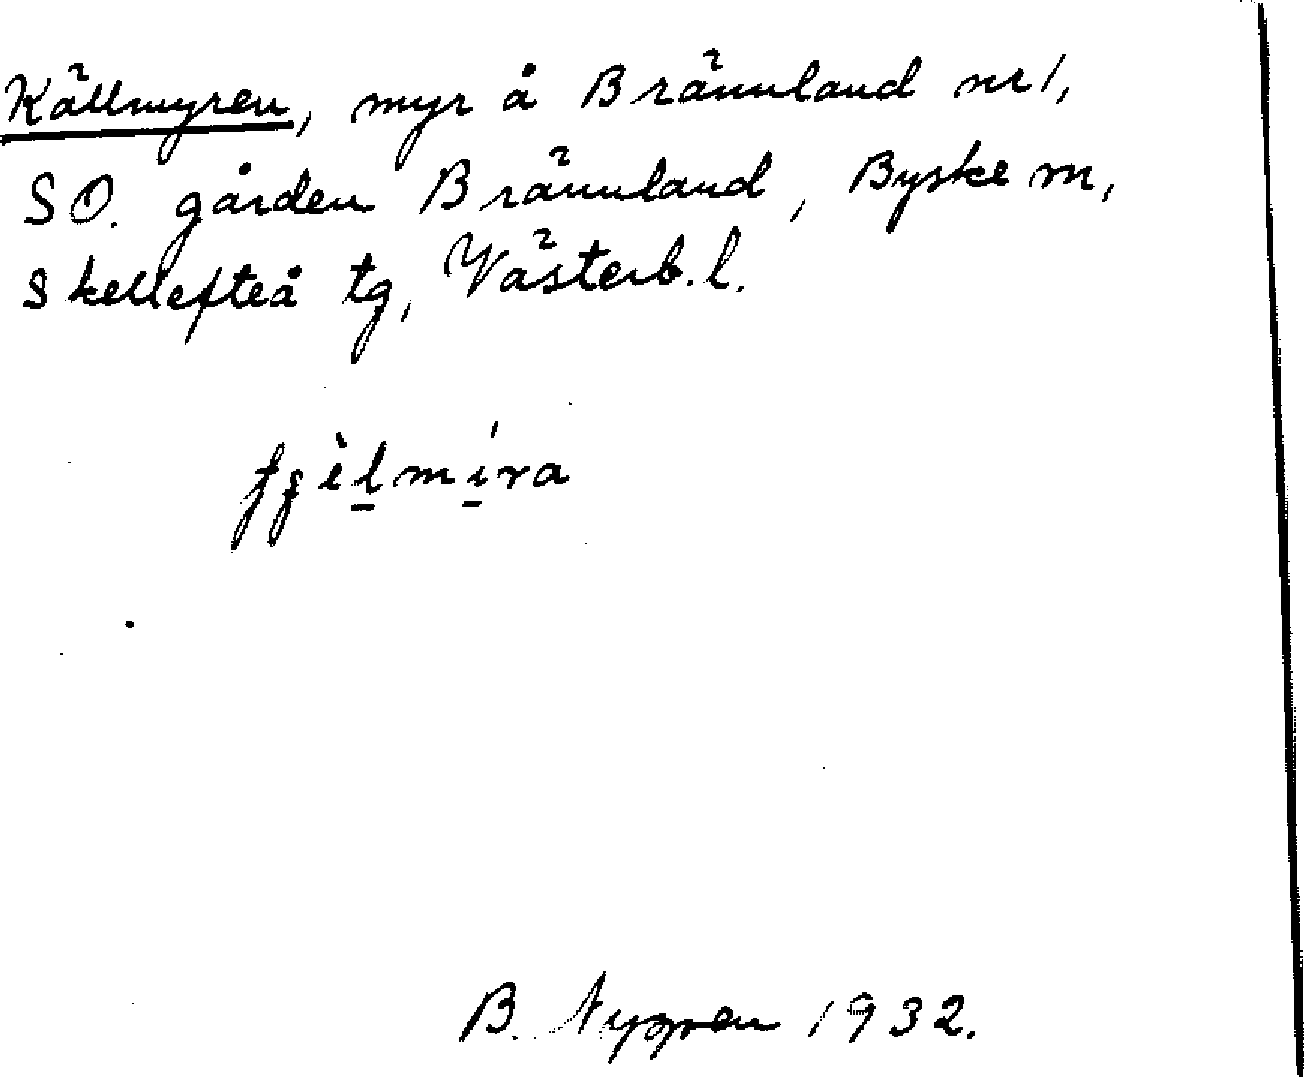 Källmyren, myr å Brännland nr 1,
SO. gården Brännland, Byske m,
Skellefteå tg, Västerb. l.
B. Nygren 1932.